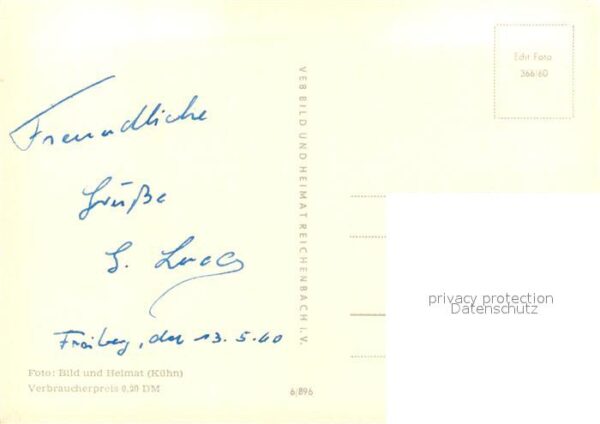 Freundliche
Grüße
Freiberg, den 13.5.60
Foto: Bild und Heimat (Kühn)
Verbraucherpreis 0,20 DM
VEB BILD UND HEIMAT REICHENBACH I. V.
6/896
Edit Foto
366/60
privacy protection
Datenschutz